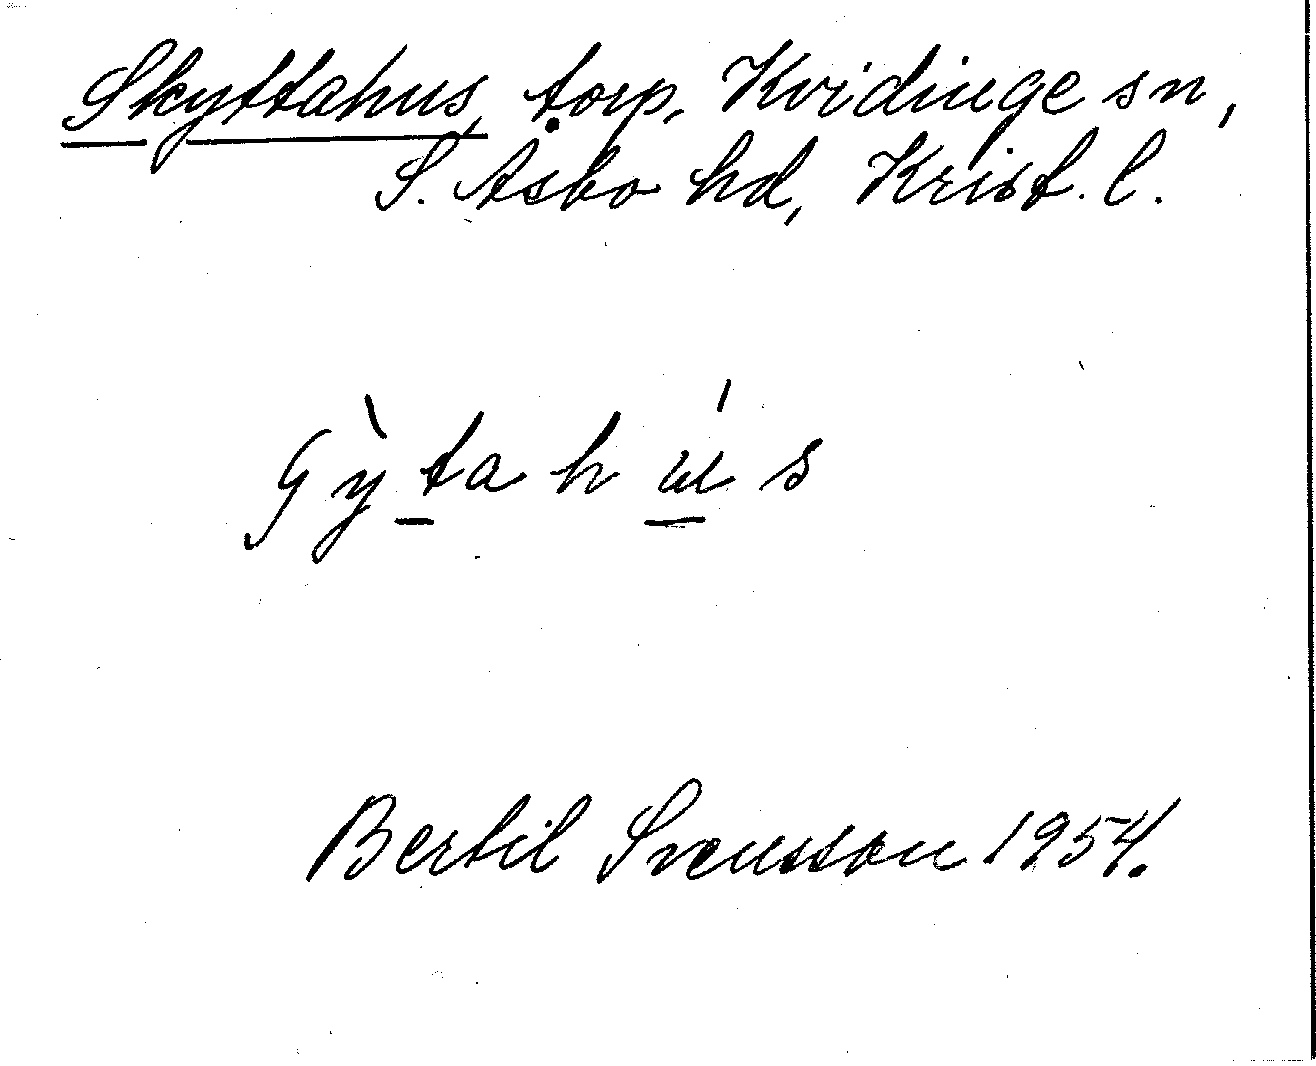 Skyttahus, torp, Kvidinge sn,
S. Åsbo hd, Krist. l.
ʃỳta hús
Bertil Svensson 1954.